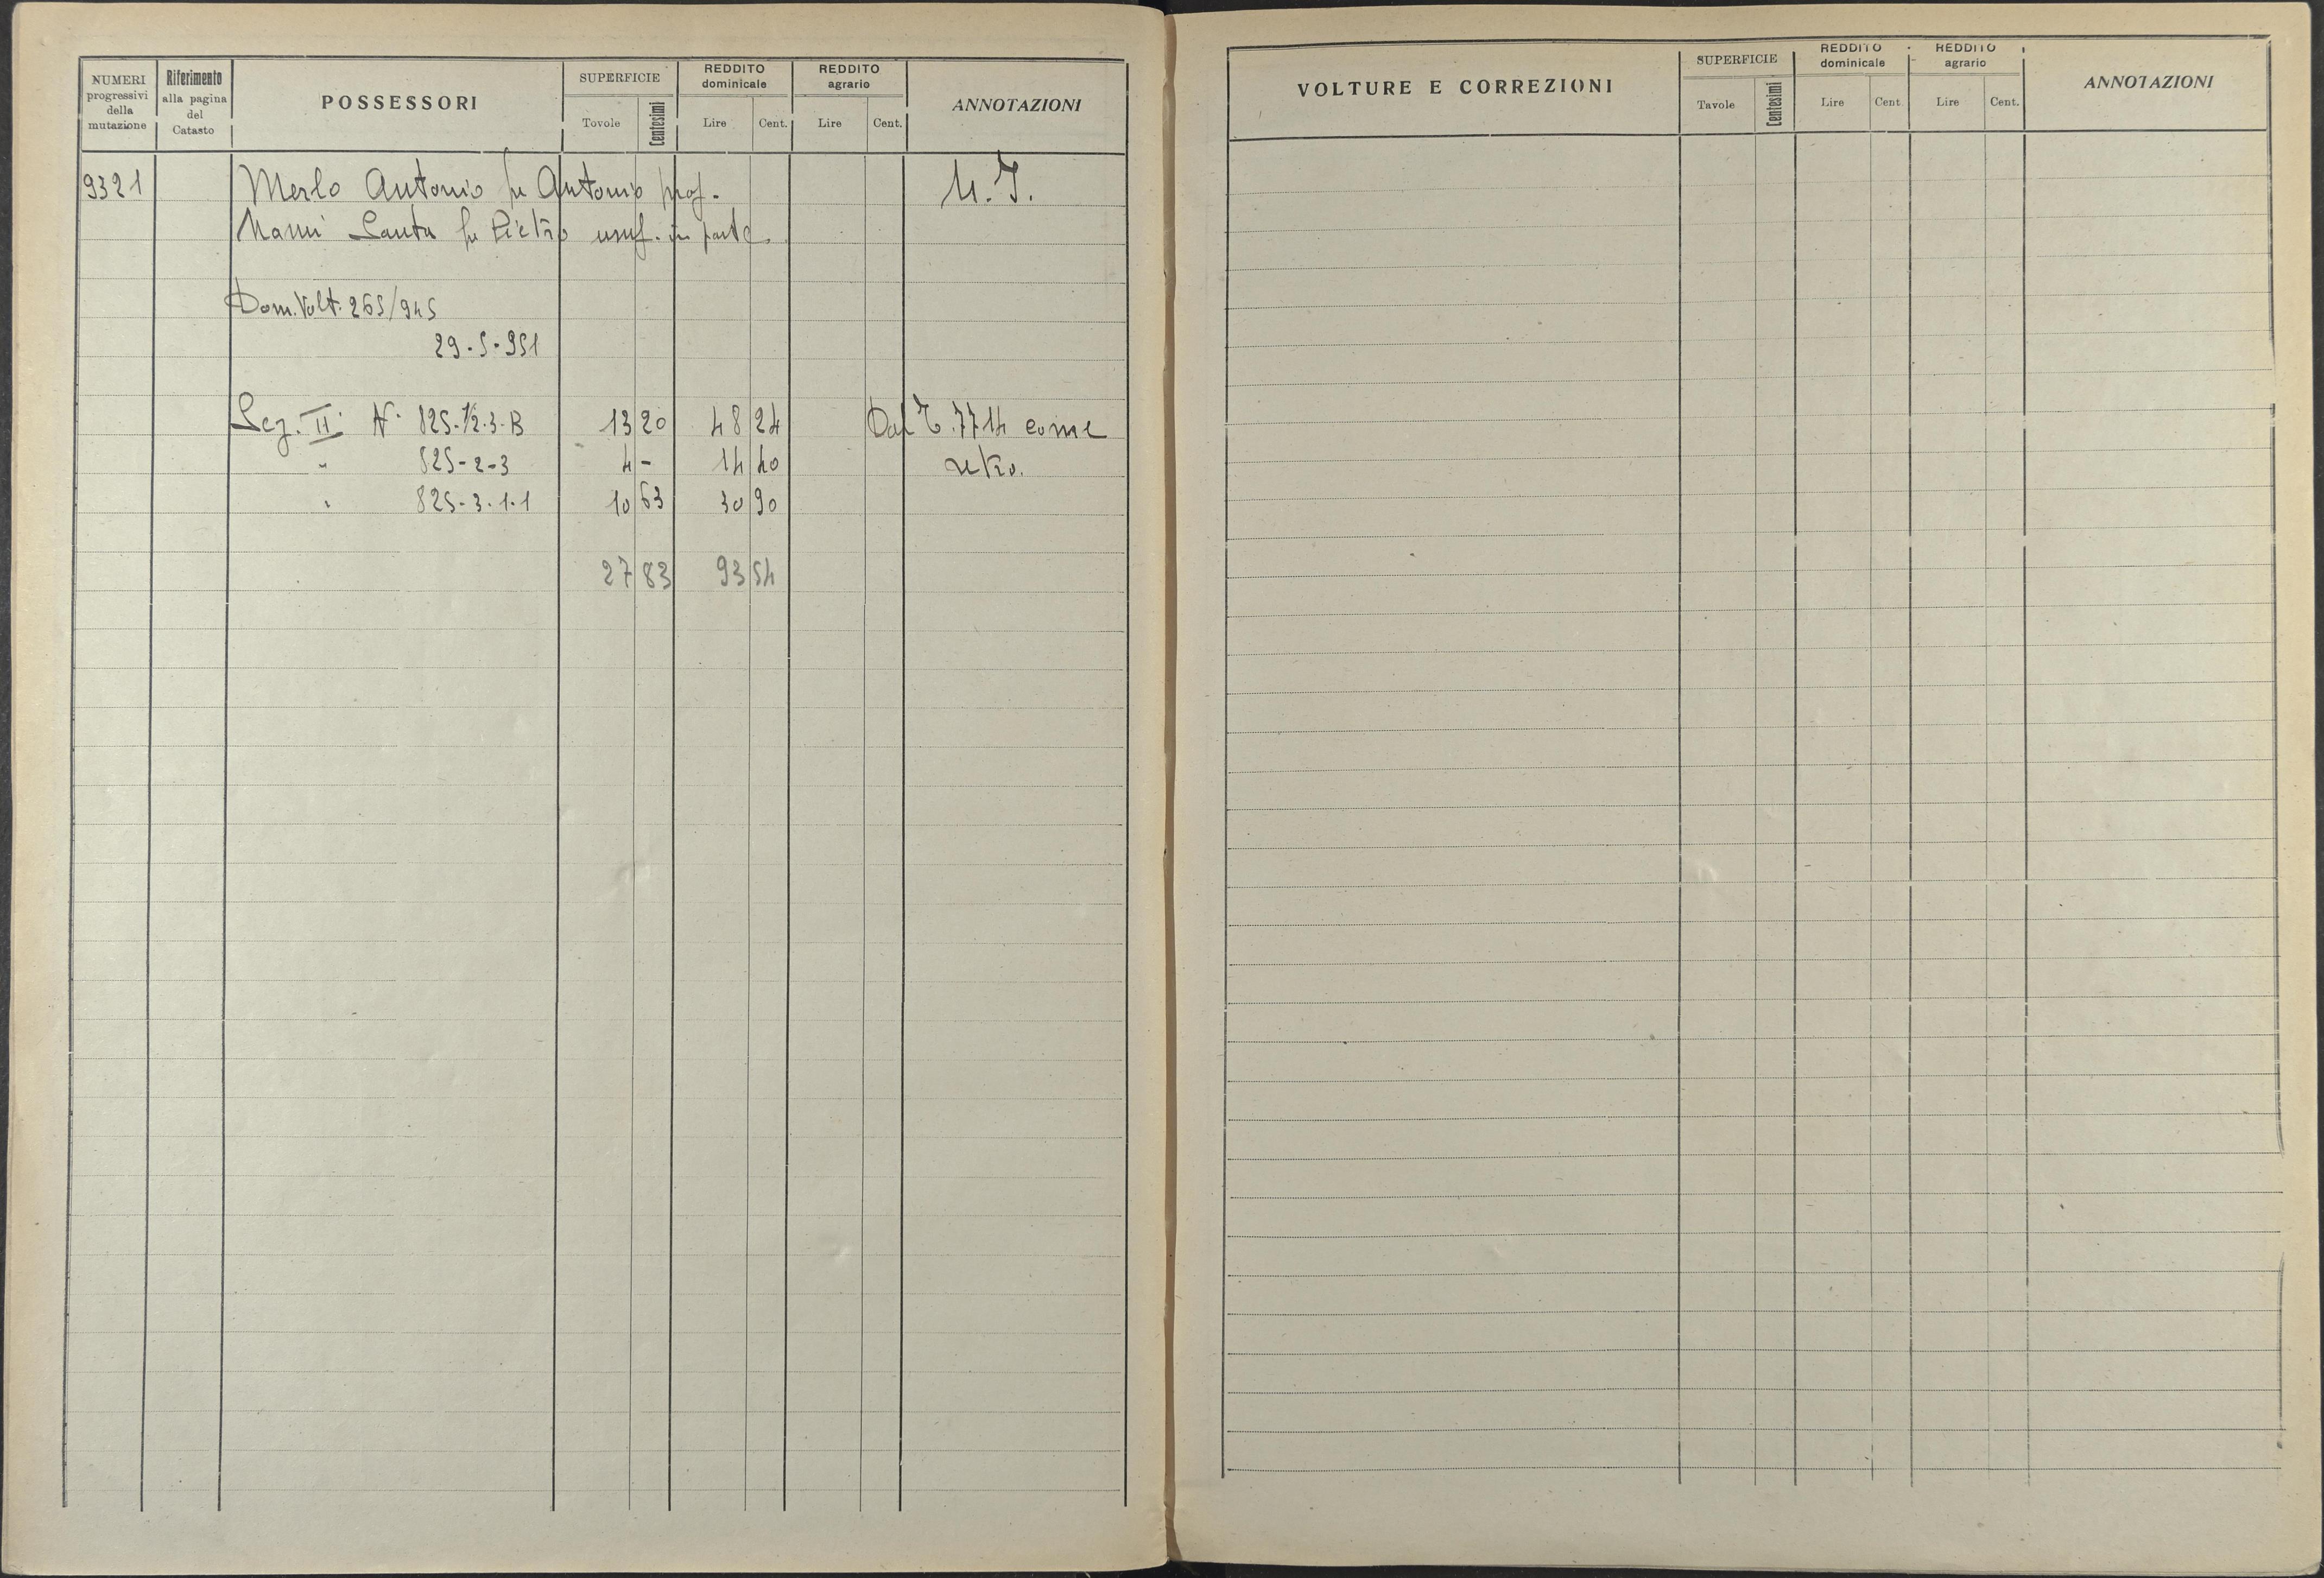 NUMERI progressivi della mutazione Riferimento alla pagina del Catasto POSSESSORI SUPERFICIE Tovole Centesimi REDDITO dominicale Lire Cent. REDDITO agrario Lire Cent. ANNOTAZIONI
9321 Merlo Antonio fu Antonio prop. U. I.
Nanni Santa fu Pietro usuf. in parte
Dom. Volt. 265/945
29-5-951
Sez. II N. 825-1/2.3-B 13 20 48 24 Dal T. 7714 come
" 825-2-3 4 - 14 40 retro.
" 825-3.1.1 10 63 30 90
27 83 93 54
VOLTURE E CORREZIONI SUPERFICIE Tavole Centesimi REDDITO dominicale Lire Cent. REDDITO agrario Lire Cent. ANNOTAZIONI